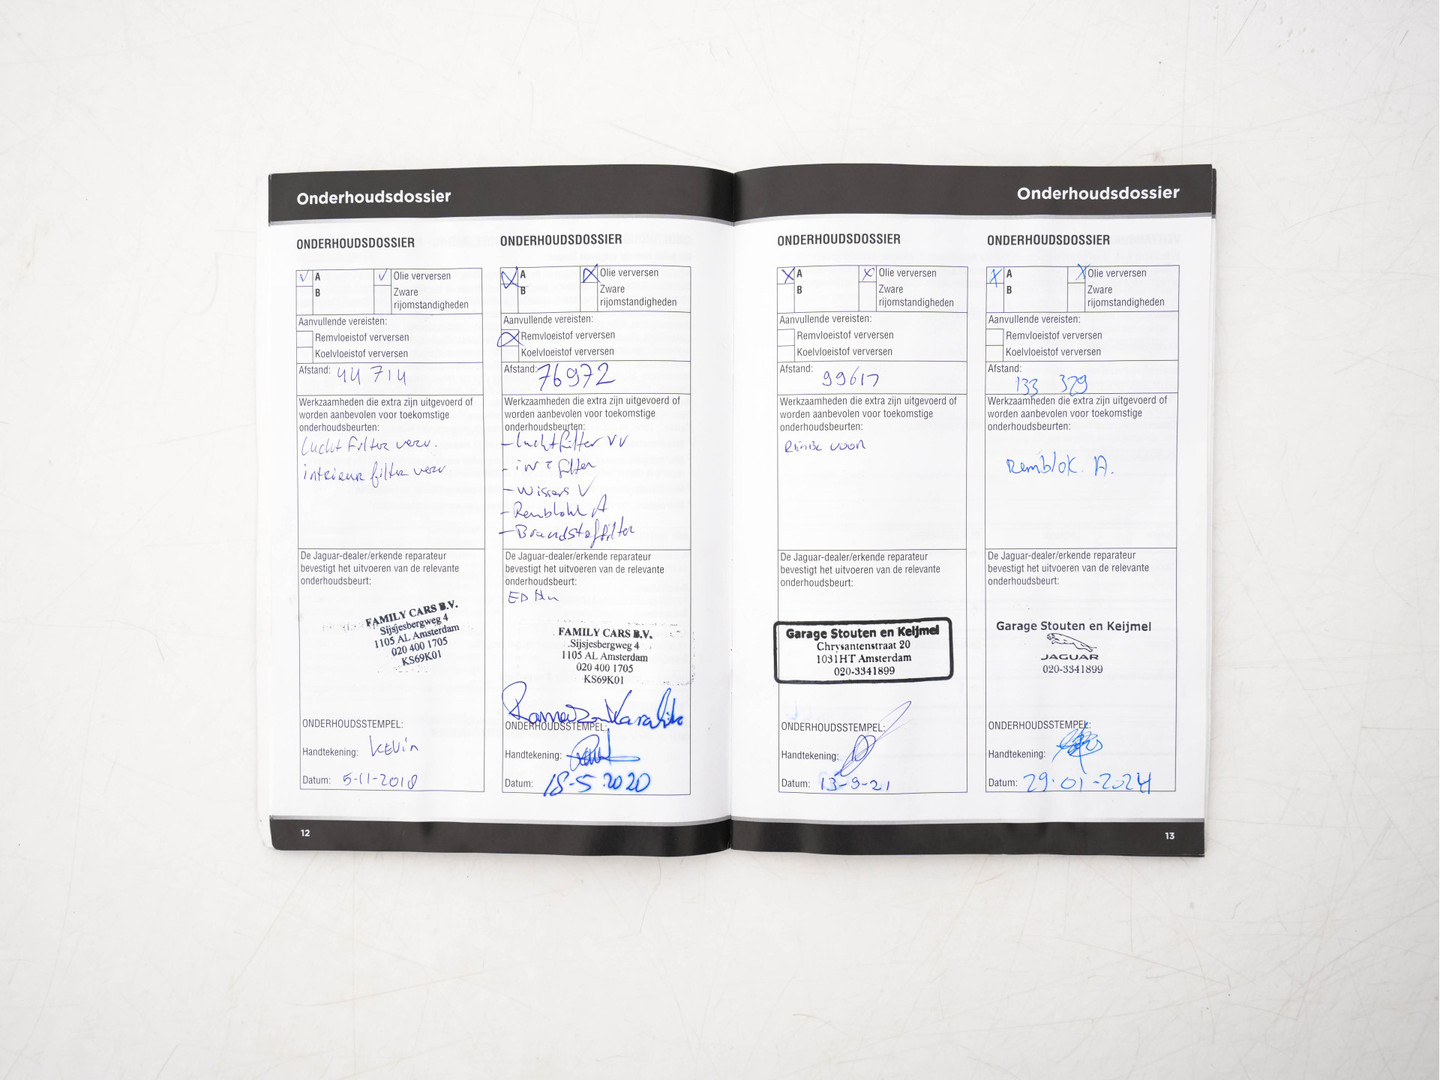 Onderhoudsdossier
ONDERHOUDSDOSSIER
A
Olie verversen
B
Zware
rijomstandigheden
Aanvullende vereisten:
Remvloeistof verversen
Koelvloeistof verversen
Afstand: 44 714
Werkzaamheden die extra zijn uitgevoerd of
worden aanbevolen voor toekomstige
onderhoudsbeurten:
Lucht Filter verv.
interieur filter verv
De Jaguar-dealer/erkende reparateur
bevestigt het uitvoeren van de relevante
onderhoudsbeurt:
FAMILY CARS B.V.
Sijsjesbergweg 4
1105 AL Amsterdam
020 400 1705
KS69K01
ONDERHOUDSSTEMPEL:
Handtekening: Kevin
Datum: 5-11-2018
12
ONDERHOUDSDOSSIER
A
Olie verversen
B
Zware
rijomstandigheden
Aanvullende vereisten:
Remvloeistof verversen
Koelvloeistof verversen
Afstand: 76972
Werkzaamheden die extra zijn uitgevoerd of
worden aanbevolen voor toekomstige
onderhoudsbeurten:
- Luchtfilter VV
- int filter
- Wissers V
- Remblokk A
- Brandstoffilter
De Jaguar-dealer/erkende reparateur
bevestigt het uitvoeren van de relevante
onderhoudsbeurt:
FAMILY CARS B.V.
Sijsjesbergweg 4
1105 AL Amsterdam
020 400 1705
KS69K01
ONDERHOUDSSTEMPEL:
Handtekening:
Datum: 18-5-2020
Onderhoudsdossier
ONDERHOUDSDOSSIER
A
Olie verversen
B
Zware
rijomstandigheden
Aanvullende vereisten:
Remvloeistof verversen
Koelvloeistof verversen
Afstand: 99617
Werkzaamheden die extra zijn uitgevoerd of
worden aanbevolen voor toekomstige
onderhoudsbeurten:
voor
De Jaguar-dealer/erkende reparateur
bevestigt het uitvoeren van de relevante
onderhoudsbeurt:
Garage Stouten en Keijmel
Chrysantenstraat 20
1031HT Amsterdam
020-3341899
ONDERHOUDSSTEMPEL:
Handtekening:
Datum: 13-9-21
ONDERHOUDSDOSSIER
A
Olie verversen
B
Zware
rijomstandigheden
Aanvullende vereisten:
Remvloeistof verversen
Koelvloeistof verversen
Afstand: 133 379
Werkzaamheden die extra zijn uitgevoerd of
worden aanbevolen voor toekomstige
onderhoudsbeurten:
Remblok. A.
De Jaguar-dealer/erkende reparateur
bevestigt het uitvoeren van de relevante
onderhoudsbeurt:
Garage Stouten en Keijmel
JAGUAR
020-3341899
ONDERHOUDSSTEMPEL:
Handtekening:
Datum: 29-01-2024
13